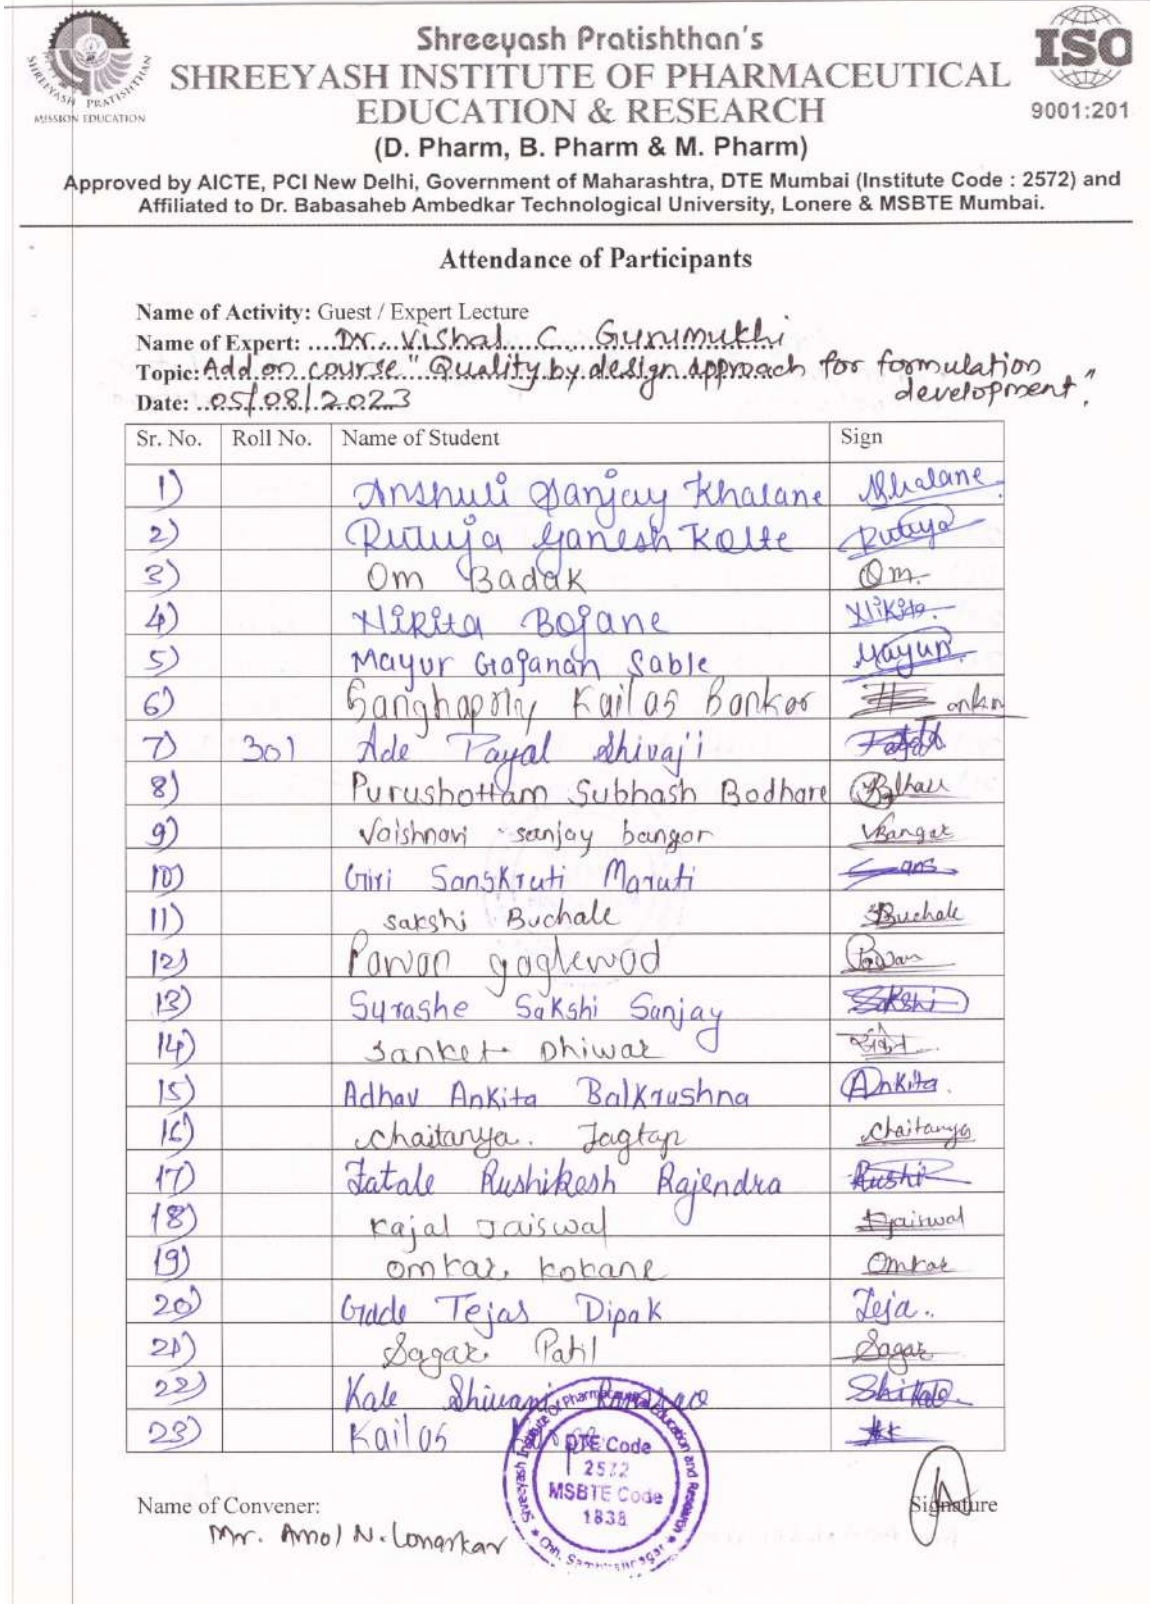 Shreeyash Pratishthan's
SHREEYASH INSTITUTE OF PHARMACEUTICAL
EDUCATION & RESEARCH
(D. Pharm, B. Pharm & M. Pharm)
Approved by AICTE, PCI New Delhi, Government of Maharashtra, DTE Mumbai (Institute Code : 2572) and
Affiliated to Dr. Babasaheb Ambedkar Technological University, Lonere & MSBTE Mumbai.
SHREEYASH PRATISHTHAN
MISSION EDUCATION
ISO
9001:201
Attendance of Participants
Name of Activity: Guest / Expert Lecture
Name of Expert: Dr. Vishal C. Gunimukhi
Topic: Add on course "Quality by design approach for formulation
development"
Date: 05/08/2023
Sr. No. Roll No. Name of Student Sign
1) Anshuli Sanjay Khalane Khalane
2) Rutuja Ganesh Kolte Rutuja
3) Om Badak Om
4) Nikita Bojane Nikita
5) Mayur Gajanan Sable Mayur
6) Kailas Bankar
7) 301 Ade Payal Shivaji Payal
8) Purushottam Subhash Bodhare
9) Vaishnavi sanjay bangar VBangar
10) Giri Sanskruti Maruti
11) sakshi Buchale Buchale
12) Pawan gaglewod Pawan
13) Surashe Sakshi Sanjay Sakshi
14) Sanket Dhiwar संकेत
15) Adhav Ankita Balkrushna Ankita
16) Chaitanya. Jagtap Chaitanya
17) Fatale Rushikesh Rajendra Rushi
18) Kajal Jaiswal Jaiswal
19) Omkar. kokane Omkar
20) Gade Tejas Dipak Teja.
21) Sagar Patil Sagar
22) Kale Shivani
23) Kailas
Shreeyash Institute Of Pharmaceutical Education and Research
DTE Code
2572
MSBTE Code
1838
Chh. Sambhajinagar
Name of Convener:
Mr. Amol N. Lonarkar
Signature